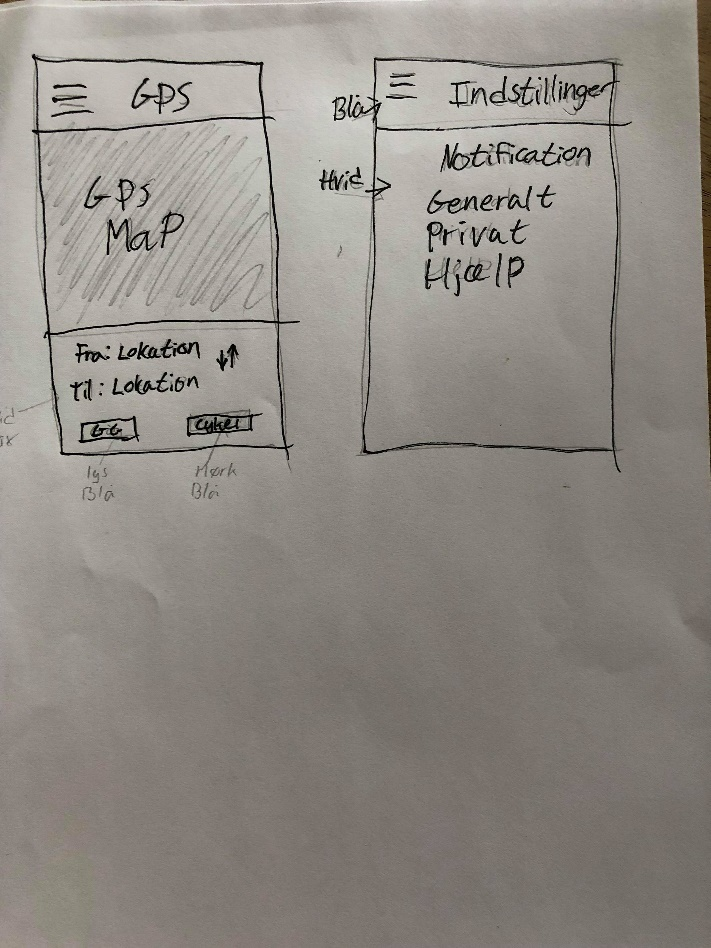 GPS
GPS
MaP
Fra: Lokation ↓↑
Til: Lokation
Cykel
lys
Blå
Mørk
Blå
Indstillinger
Blå
Hvid
Notification
Generalt
Privat
Hjælp